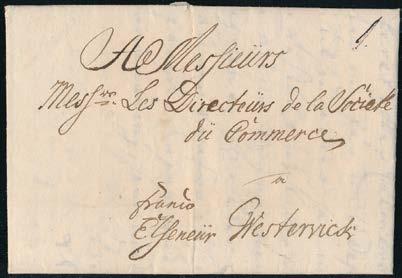 A Messieurs
Messrs. Les Directeurs de la Societé
du Commerce
a
franco
Elseneur Westervick